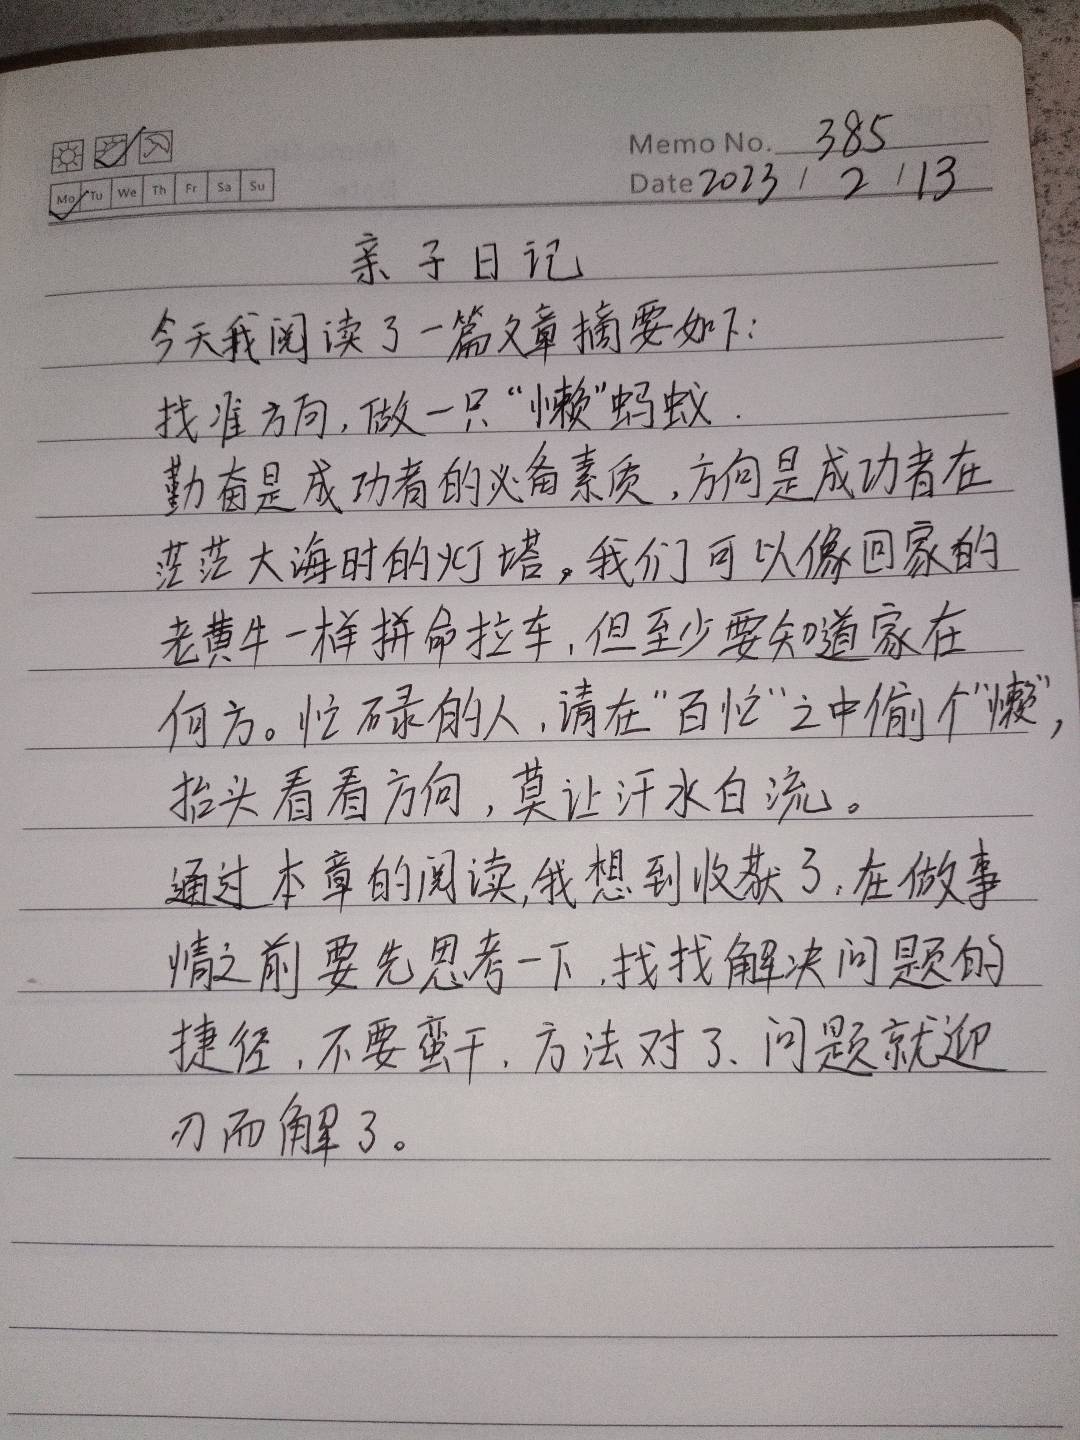 Memo No. 385
Mo Tu We Th Fr Sa Su
Date 2023 / 2 / 13
亲子日记
今天我阅读了一篇文章摘要如下：
找准方向，做一只“懒”蚂蚁.
勤奋是成功者的必备素质，方向是成功者在
茫茫大海时的灯塔。我们可以像回家的
老黄牛一样拼命拉车，但至少要知道家在
何方。忙碌的人，请在“百忙”之中偷个“懒”，
抬头看看方向，莫让汗水白流。
通过本章的阅读，我想到收获了，在做事
情之前要先思考一下，找找解决问题的
捷径，不要蛮干，方法对了、问题就迎
刃而解了。